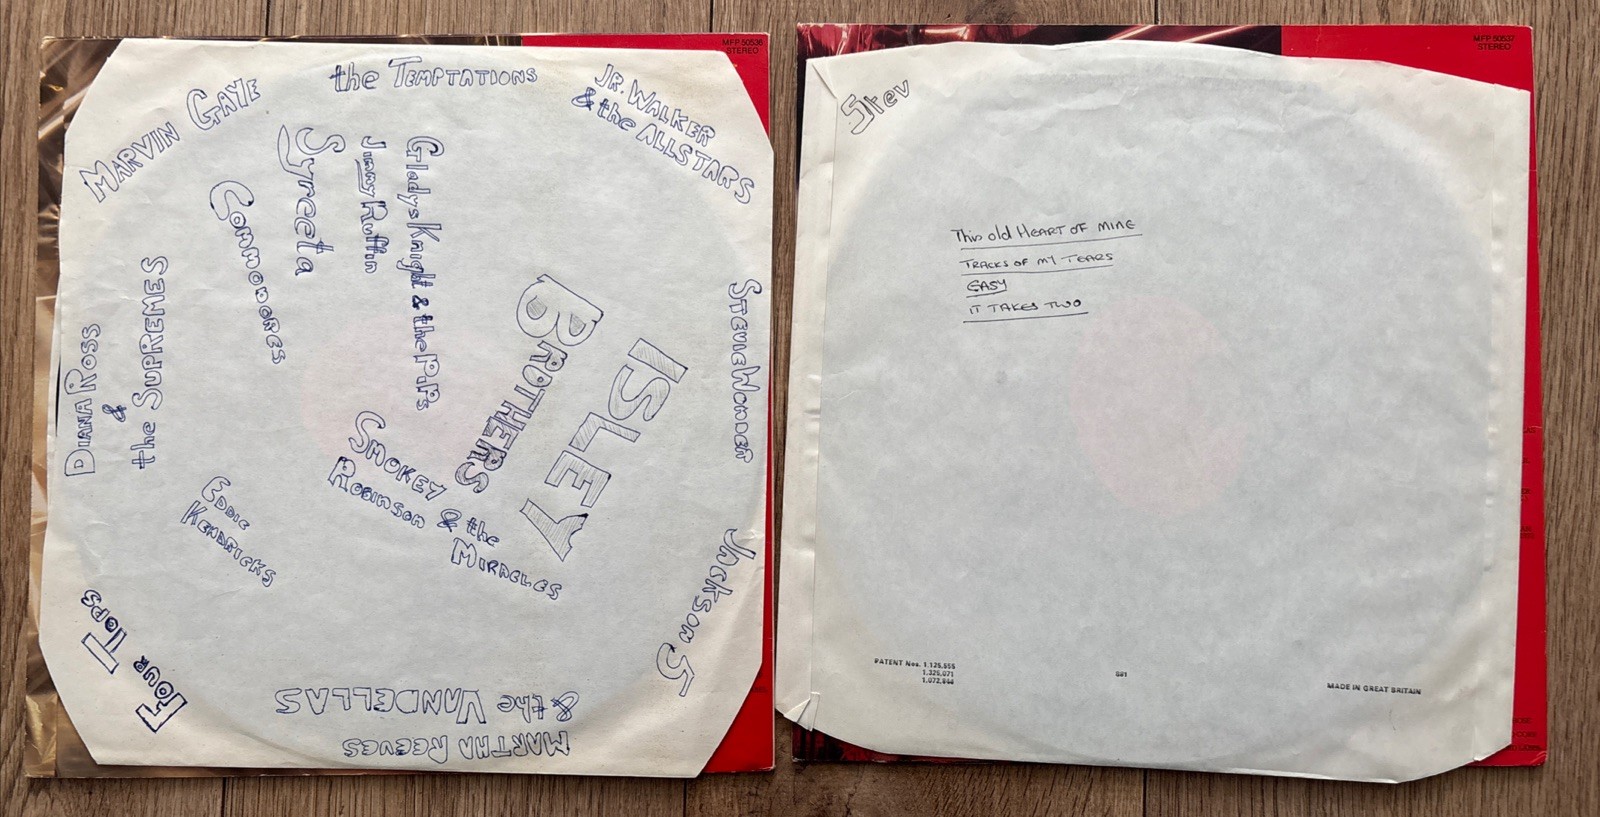 MFP 50536
STEREO
the TEMPTATIONS
MARVIN GAYE
JR. WALKER
& the ALLSTARS
Gladys Knight & the PIPS
Jimmy Ruffin
Syreeta
COMMODORES
STEVIE WONDER
ISLEY
BROTHERS
DIANA ROSS
&
the SUPREMES
SMOKEY
ROBINSON & the
MIRACLES
EDDIE
KENDRICKS
Jackson 5
FOUR TOPS
MARTHA REEVES
& the VANDELLAS
MFP 50537
STEREO
Stev
This old HEART OF MINE
TRACKS OF MY TEARS
EASY
IT TAKES TWO
PATENT Nos. 1,125,555
1,325,071
1,072,844
MADE IN GREAT BRITAIN